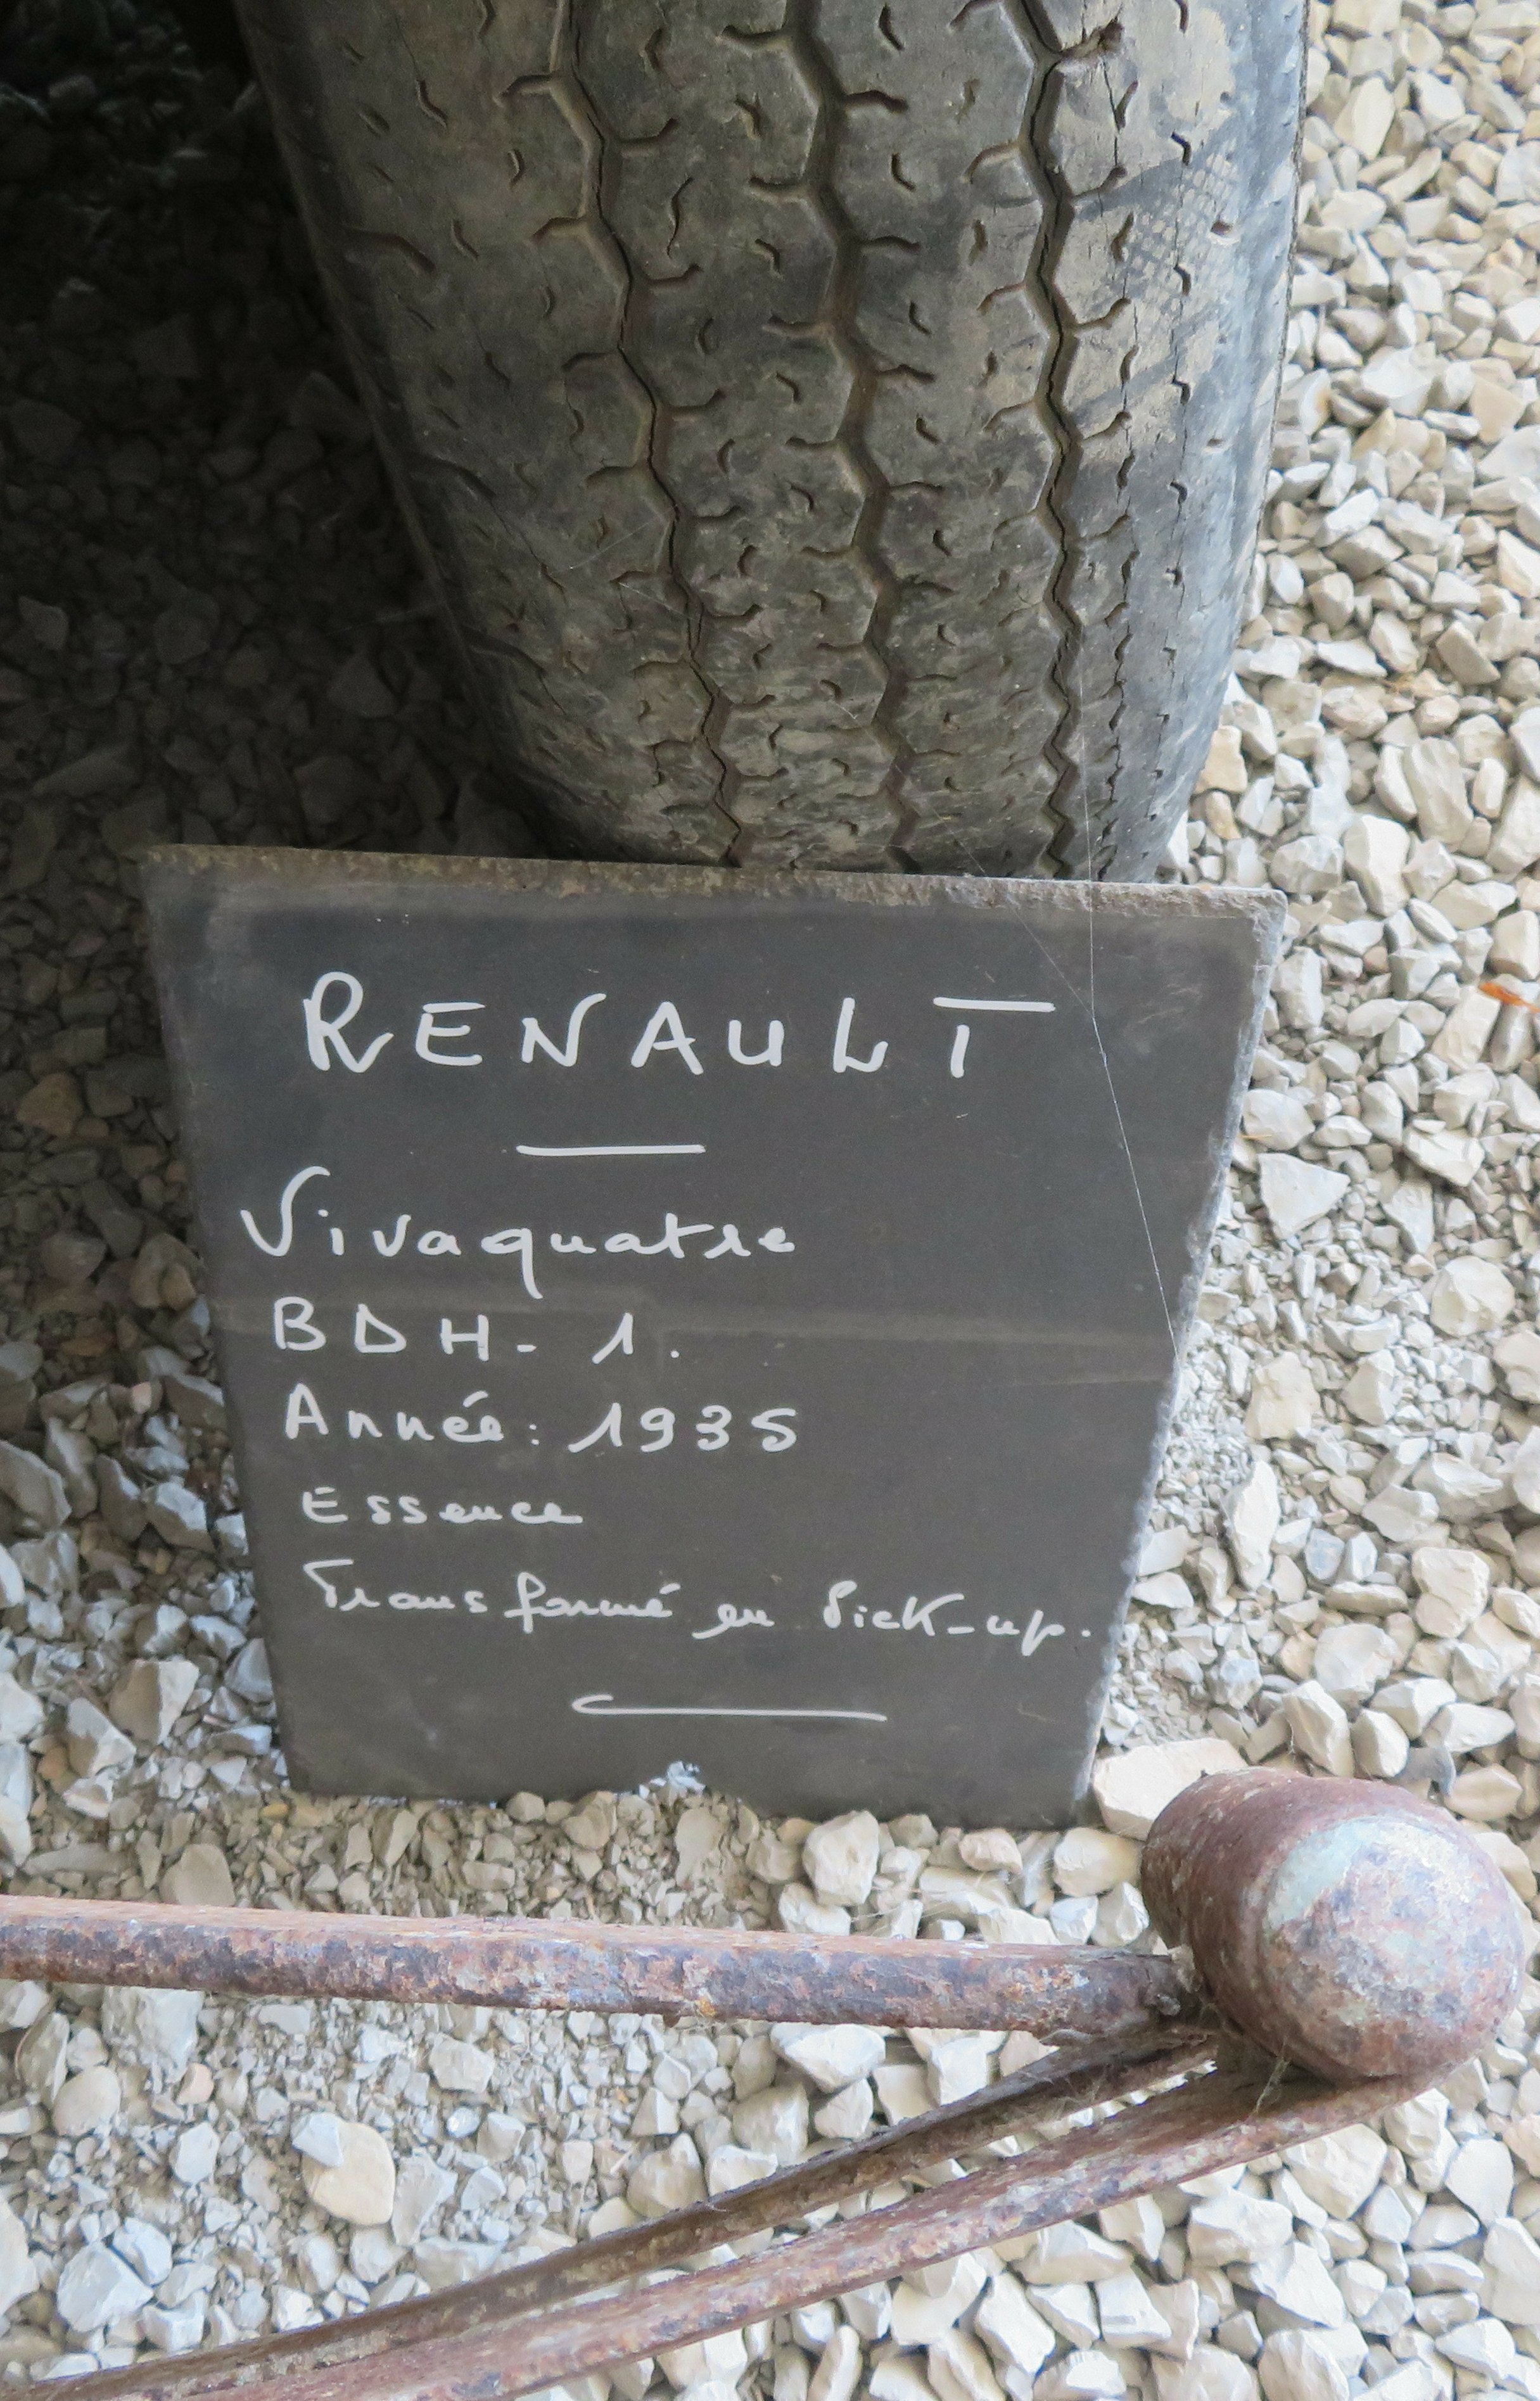 RENAULT
Vivaquatre
BDH-1.
Année: 1935
Essence
Transformé en Pick-up.